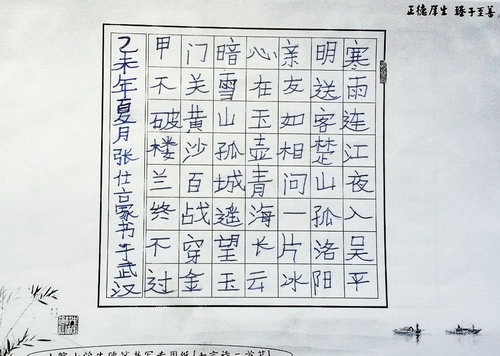 正德厚生 臻于至善
寒雨连江夜入吴平
明送客楚山孤洛阳
亲友如相问一片冰
心在玉壶青海长云
暗雪山孤城遥望玉
门关黄沙百战穿金
甲不破楼兰终不过
乙未年夏月张仕豪书于武汉